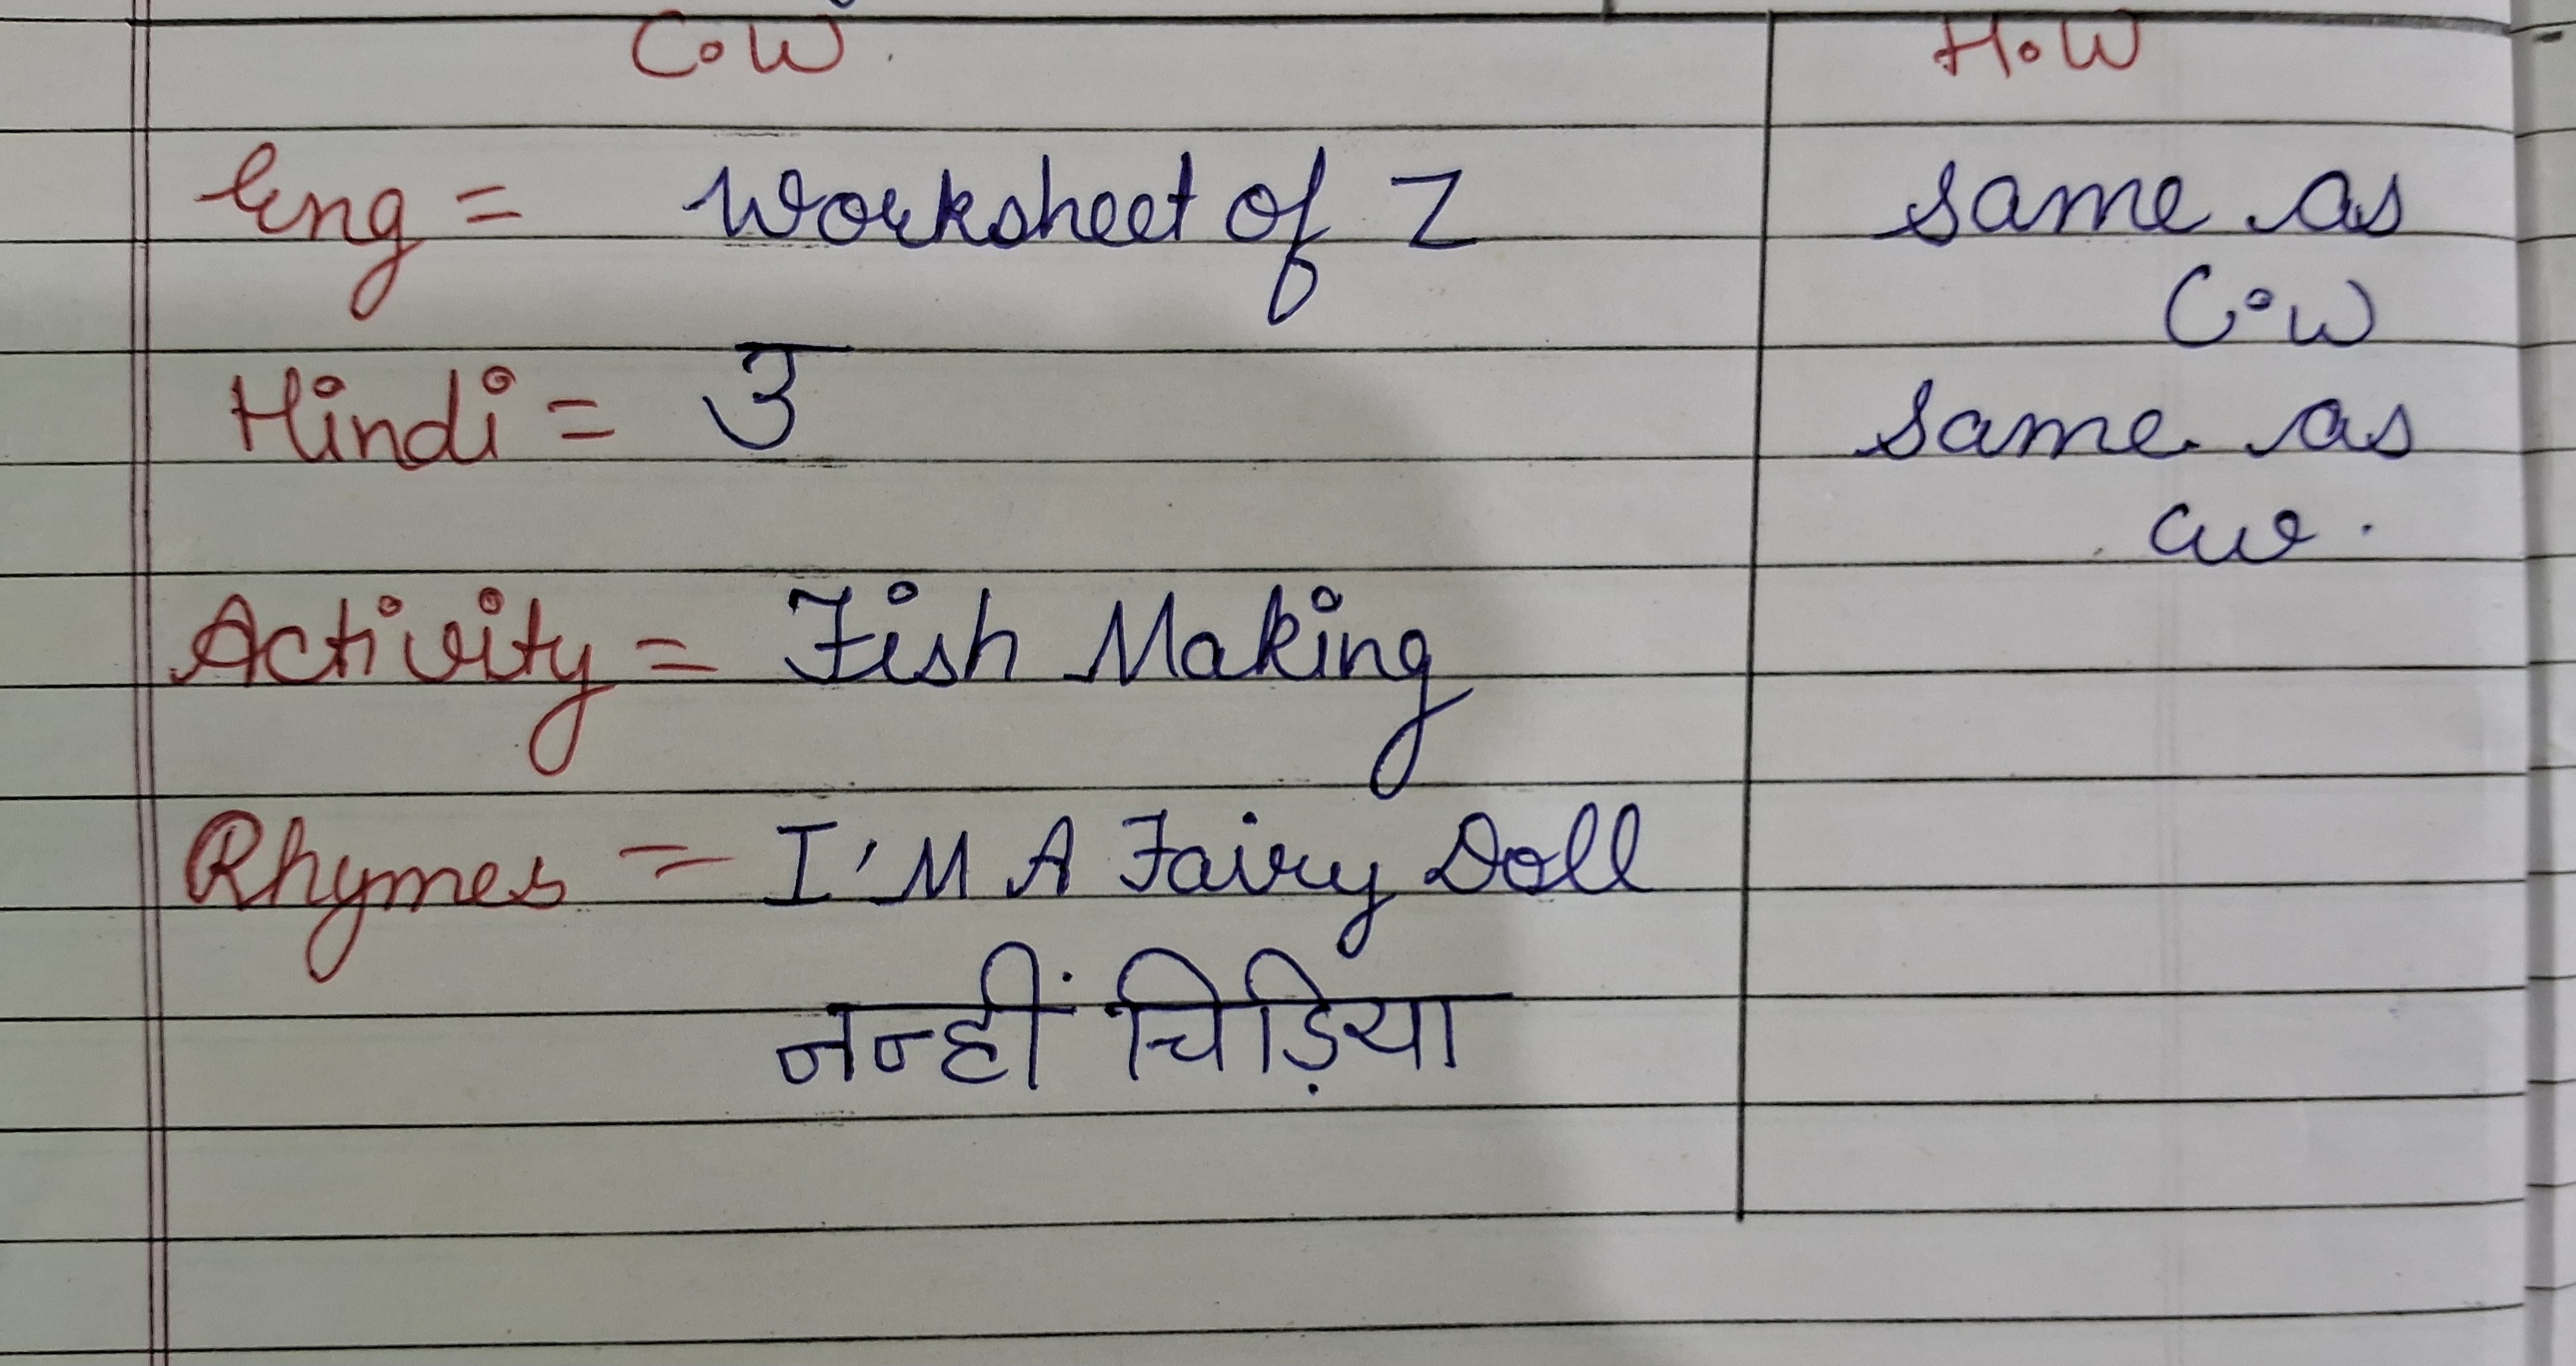 C.W. H.W
Eng = Worksheet of Z same as
C.W
Hindi = उ same as
cw.
Activity = Fish Making
Rhymes = I'M A Fairy Doll
नन्हीं चिड़िया